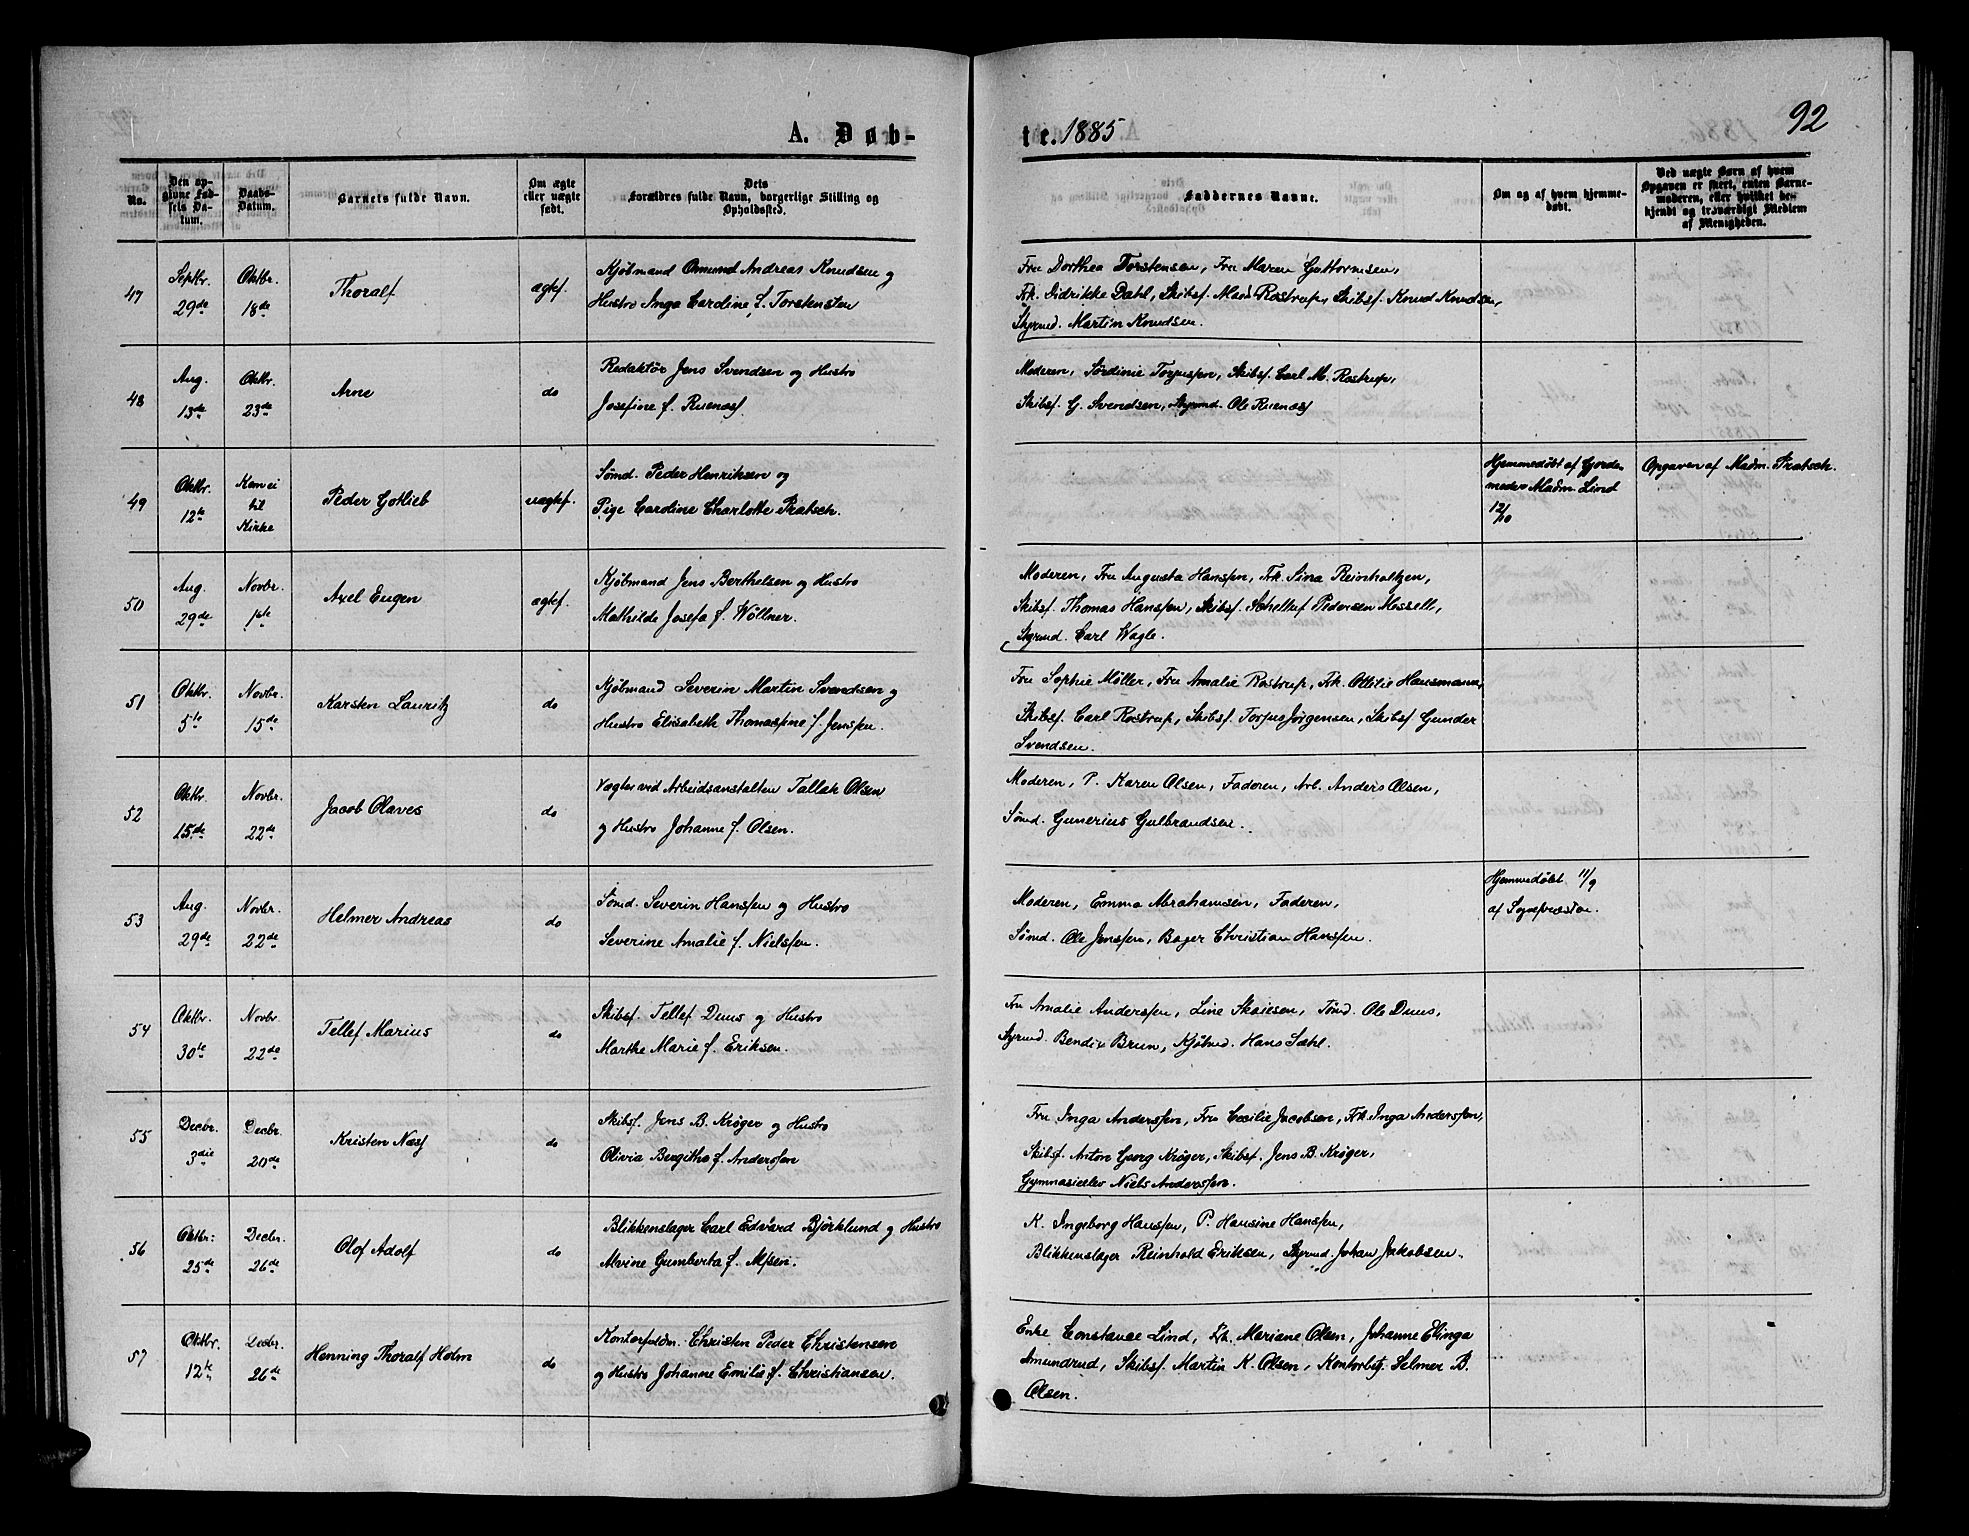 A. Døb-
te. 1885
92
No.
Den op-
givne Fød-
sels Da-
tum.
Daabs-
Datum.
Barnets fulde Navn.
Om ægte
eller uægte
født.
Dets
Forældres fulde Navn, borgerlige Stilling og
Opholdssted.
Faddernes Navne.
Om og af hvem hjemme-
døbt.
Ved uægte Børn af hvem
Opgaven er skeet, enten Barne-
moderen, eller hvilket be-
kjendt og troværdigt Medlem
af Menigheden.
47
Septbr.
29de
Oktbr.
18de
Thoralf
ægtef.
Kjøbmand Omund Andreas Knudsen og
Hustro Inga Cardine f. Torstensten
Fru Dorthea Torstensen, Fru Maren Guttormsen,
Frk. Didrikke Dahl, Skibsf. Mads Rostrup, Skibsf. Knud Knudsen,
Styrmd. Martin Knudsen.
48
Aug.
13de
Oktbr.
23de
Arne
do
Redaktør Jens Svendsen og Hustro
Josefine f. Ruenæs
Moderen, Tordinie Torjussen, Skibsf. Carl M. Rostrup,
Skibsf. G. Svendsen, Styrmd. Ole Ruenæs
49
Oktbr.
12te
Kom ei
til
Kirke
Peder Gotlieb
uægtef.
Sømd. Peder Henriksen og
Pige Cardine Charlotte Pratsch.
Hjemmedøbt af Gjorde-
moder Madm. Lind
12/10
Opgaven af Madm. Pratsch.
50
Aug.
29de
Novbr.
1ste
Axel Eugen
ægtef.
Kjøbmand Jens Berthelsen og Hustro
Mathilde Josefa f. Wöllner.
Moderen, Fru Augusta Hanssen, Frk. Sina Reinholtzen,
Skibsf. Thomas Hanssen, Skibsf. Schelluf Pedersen Messell,
Styrmd. Carl Wagle.
51
Oktbr.
5te
Novbr.
15de
Karsten Lauritz
do
Kjøbmand Severin Martin Svendsen og
Hustro Elisabeth Thomasine f. Jenssen.
Fru Sophie Møller, Fru Amalie Rostrup, Frk. Ottilie Hansmann,
Skibsf. Carl Rostrup, Skibsf. Torjus Jørgensen, Skibsf Gunder
Svendsen.
52
Oktbr.
15de
Novbr.
22de
Jacob Olaves
do
Vægter ved Arbeidsanstalten Tallak Olsen
og Hustro Johanne f. Olsen.
Moderen, P. Karen Olsen, Faderen, Arb. Anders Olsen,
Sømd. Gunerius Gulbrandsen.
53
Aug.
29de
Novbr.
22de
Helmer Andreas
do
Sømd. Severin Hanssen og Hustro
Severine Amalie f. Nielssen.
Moderen, Emma Abrahamsen, Faderen,
Sømd. Ole Jenssen, Bager Christian Hanssen.
Hjemmedøbt 11/9
af Sognepresten.
54
Oktbr.
30te
Novbr.
22de
Tellef Marius
do
Skibsf. Tellef Duus og Hustro
Marthe Marie f. Eriksen.
Fru Amalie Anderssen, Line Skoiesen, Tømd. Ole Duus,
Styrmd. Bendix Brun, Kjøbmd. Hans Sæhl.
55
Decbr.
3die
Decbr.
20de
Kristen Næs
do
Skibsf. Jens B. Krøger og Hustro
Olivia Bergithe f. Anderssen
Fru Inga Anderssen, Fru Cecilie Jacobsen, Frk. Inga Anderssen,
Skibsf. Anton Georg Krøger, Skibsf. Jens B. Krøger,
Gymnasieelev Niels Anderssen.
56
Oktbr:
25de
Decbr.
26de
Olof Adolf
do
Blikkenslager Carl Edvard Bjørklund og Hustro
Alvine Gumberta f. Alfsen.
K. Ingeborg Hanssen, P. Hansine Hanssen,
Blikkenslager Reinhold Eriksen, Styrmd. Johan Jakobsen.
57
Oktbr.
12te
Decbr.
26de
Henning Thoralf Holm
do
Kontorfuldm. Christen Peder Christensen
og Hustro Johanne Emilie f. Christiansen.
Enke Constance Lind, Frk. Mariane Olsen, Johanne Elinga
Amundrud, Skibsf. Martin K. Olsen, Kontorbetj. Selmer B.
Olsen.